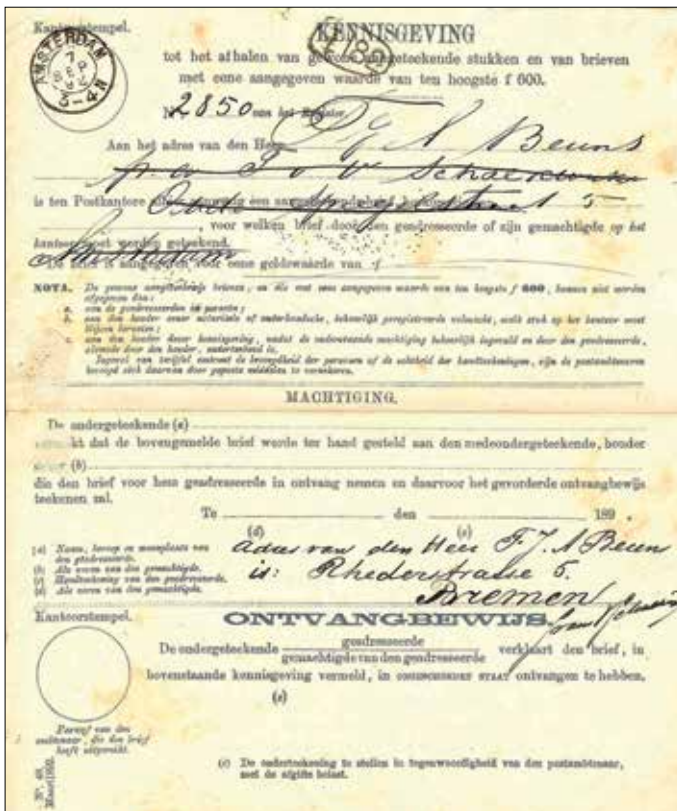 Kantoorstempel.
KENNISGEVING
AMSTERDAM
3-4 N
182
tot het afhalen van gewone aangeteekende stukken en van brieven
met eene aangegeven waarde van ten hoogste f 600.
No. 2850 van het Register.
Aan het adres van den Heer F J A Beuns
p.a
is ten Postkantore
Oude Spiegelstraat 5
, voor welken brief door den geadresseerde of zijn gemachtigde op het
kantoor moet worden geteekend.
Amsterdam
De brief is aangegeven voor eene geldswaarde van f
NOTA. De gewone aangeteekende brieven, en die met eene aangegeven waarde van ten hoogste f 600, kunnen niet worden
afgegeven dan:
a. aan de geadresseerden in persoon;
b. aan den houder eener notarieele of onderhandsche, behoorlijk geregistreerde volmacht, welk stuk op het kantoor moet
blijven berusten;
c. aan den houder dezer kennisgeving, nadat de onderstaande machtiging behoorlijk ingevuld en door den geadresseerde,
alsmede door den houder, onderteekend is.
Ingeval van twijfel omtrent de bevoegdheid der personen of de echtheid der handteekeningen, zijn de postambtenaren
bevoegd zich daarvan door gepaste middelen te verzekeren.
MACHTIGING.
De ondergeteekende (a)
dat de bovengemelde brief worde ter hand gesteld aan den medeondergeteekende, houder
(b)
die den brief voor hem geadresseerde in ontvang nemen en daarvoor het gevorderde ontvangbewijs
teekenen zal.
Te den 189 .
(d) (c)
(a) Naam, beroep en woonplaats van
den geadresseerde.
(b) Als voren van den gemachtigde.
(c) Handteekening van den geadresseerde.
(d) Als voren van den gemachtigde.
Adres van den Heer F. J. A Beuns
is: Rhederstrasse 5.
Bremen
Kantoorstempel.
ONTVANGBEWIJS.
De ondergeteekende geadresseerde
gemachtigde van den geadresseerde verklaart den brief, in
bovenstaande kennisgeving vermeld, in ONGESCHONDEN STAAT ontvangen te hebben.
(e)
Paraaf van den
ambtenaar, die den brief
heeft uitgereikt.
(e) De onderteekening te stellen in tegenwoordigheid van den postambtenaar,
met de afgifte belast.
No. 49.